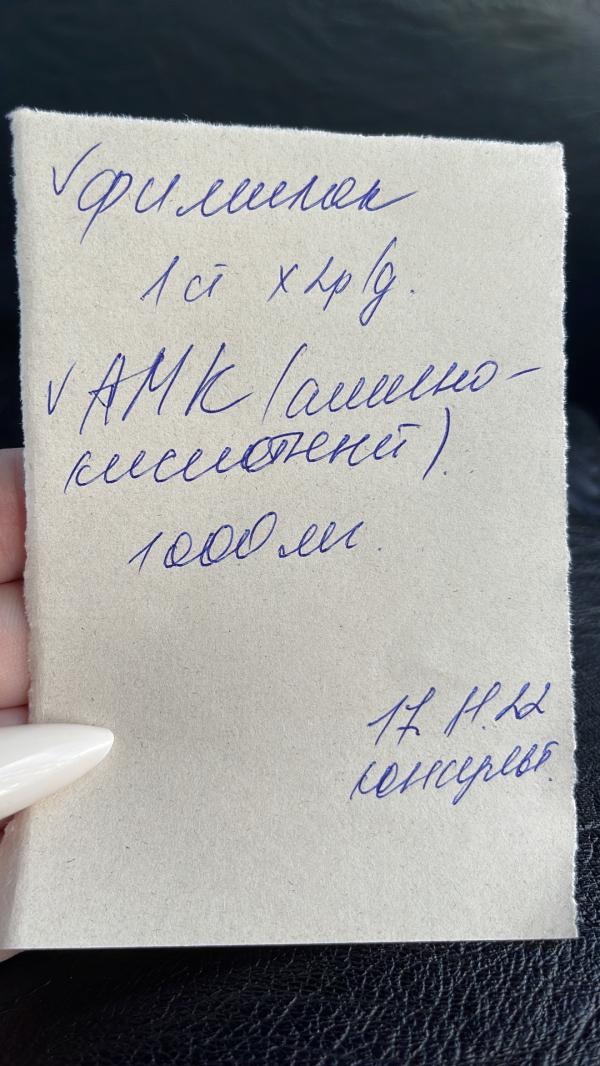 ✓ Филипок
1 ст х 2р/д.
✓ АМК (амино-
кислотный).
1000 мг.
17.11.22
консульт.